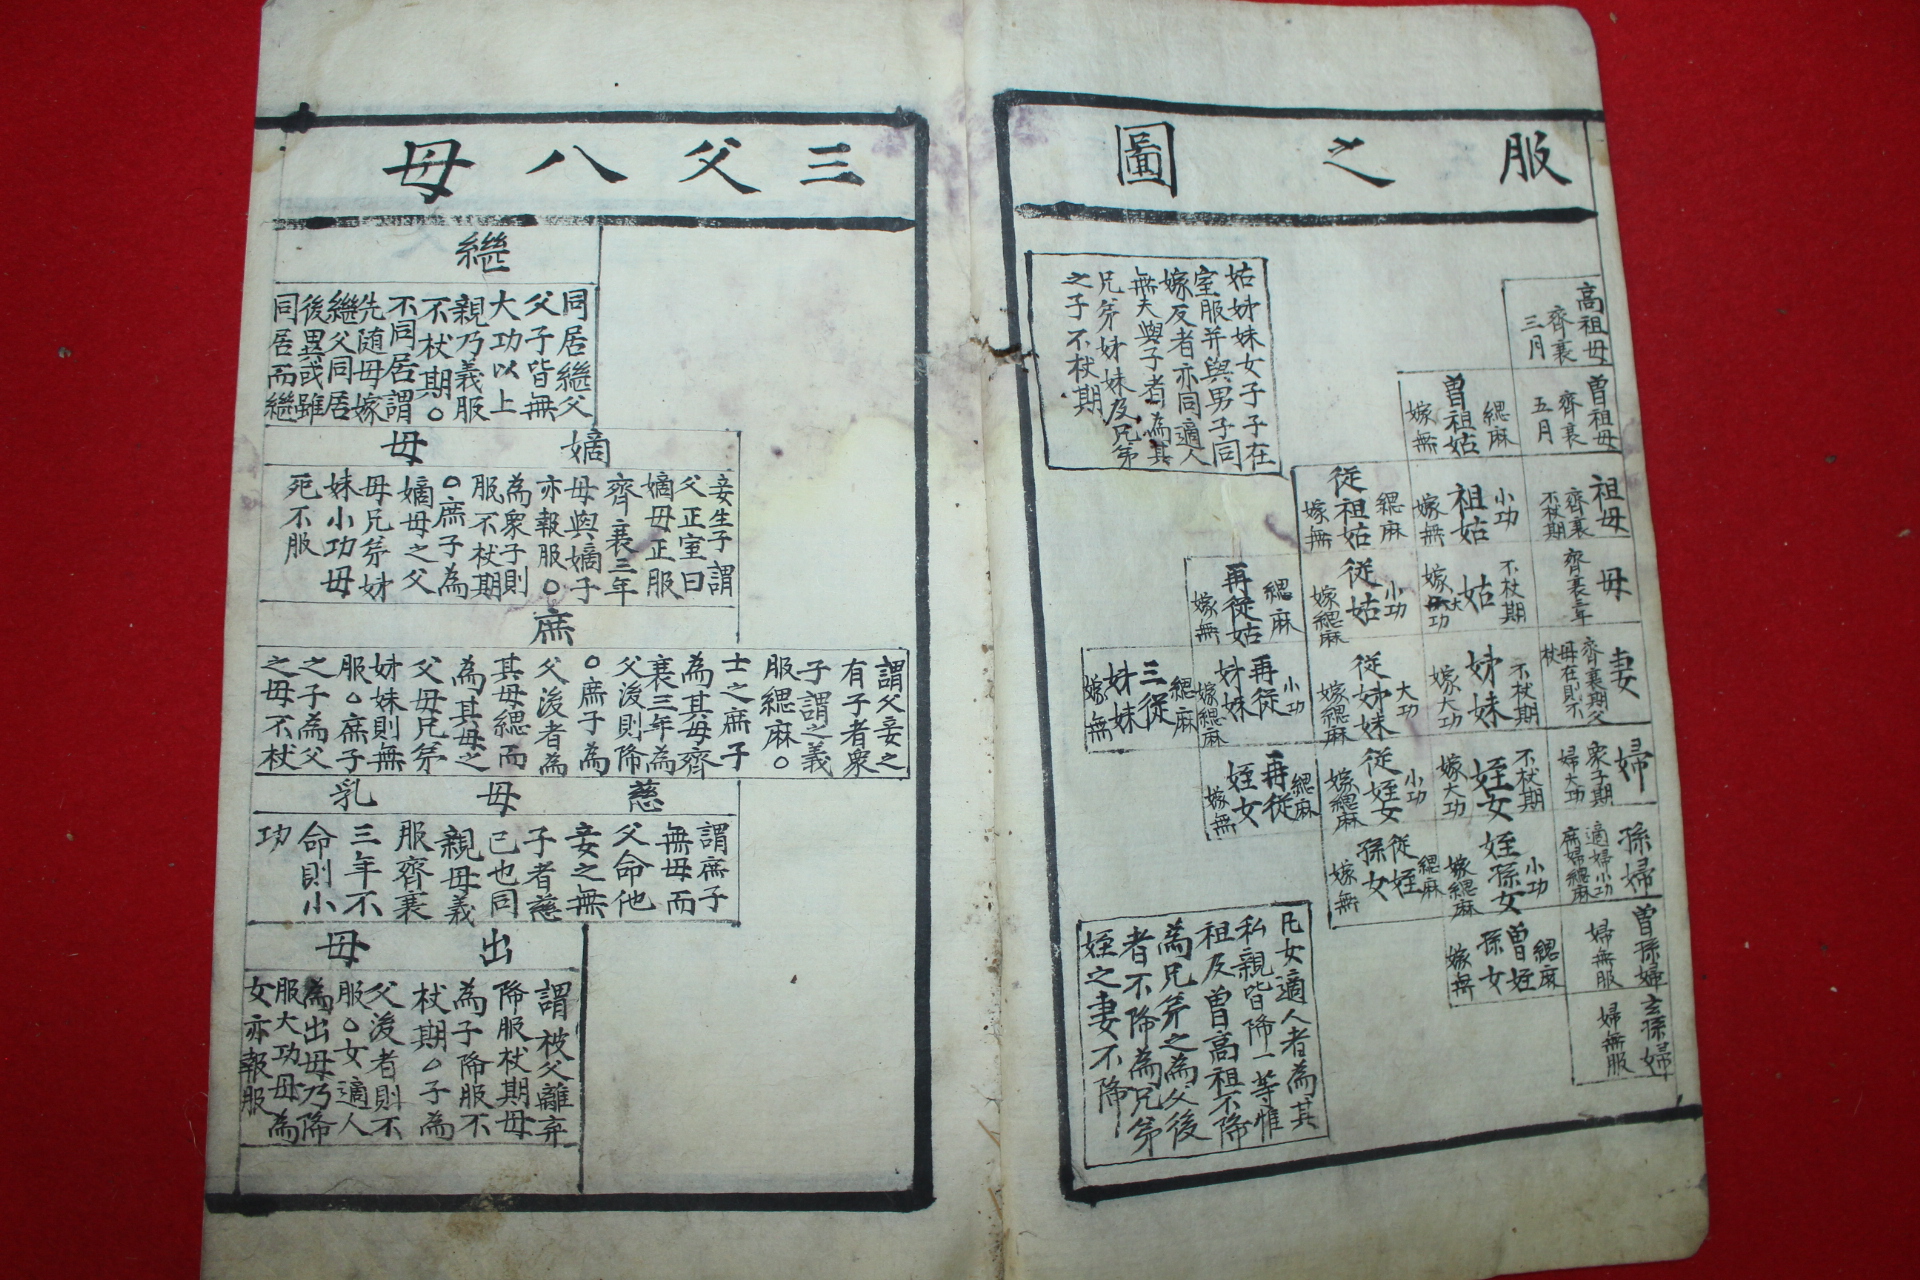 服之圖
高祖母
齊衰
三月
曾祖母
齊衰
五月
緦麻
曾祖姑
嫁無
祖母
齊衰
不杖期
小功
祖姑
嫁無
緦麻
從祖姑
嫁無
母
齊衰三年
不杖期
姑
嫁大功
小功
從姑
嫁緦麻
緦麻
再從姑
嫁無
妻
齊衰期父
母在則不
杖
不杖期
姊妹
嫁大功
大功
從姊妹
嫁緦麻
小功
再從
姊妹
嫁緦麻
緦麻
三從
姊妹
嫁無
婦
衆子期
婦大功
不杖期
姪女
嫁大功
小功
從姪女
嫁緦麻
緦麻
再從
姪女
嫁無
孫婦
適婦小功
庶婦緦麻
小功
姪孫女
嫁緦麻
緦麻
從姪
孫女
嫁無
曾孫婦
婦無服
緦麻
曾姪
孫女
嫁無
玄孫婦
婦無服
姑姊妹女子子在
室服並與男子同
嫁反者亦同適人
無夫與子者為其
兄弟姊妹及兄弟
之子不杖期
凡女適人者為其
私親皆降一等惟
祖及曾高祖不降
為兄弟之為父後
者不降為兄弟
姪之妻不降
三父八母
繼
同居繼父
父子皆無
大功以上
親乃義服
不杖期○
不同居謂
先随母嫁
繼父同居
後異或雖
同居而繼
嫡母
妾生子謂
父正室曰
嫡母正服
齊衰三年
母與嫡子
亦報服○
為衆子則
服不杖期
○庶子為
嫡母之父
母兄弟姊
妹小功母
死不服
庶
謂父妾之
有子者衆
子謂之義
服緦麻○
士之庶子
為其母齊
衰三年為
父後則降
○庶子為
父後者為
其母緦而
為其母之
父母兄弟
姊妹則無
服○庶子
之子為父
之母不杖
慈母乳
謂庶子
無母而
父命他
妾之無
子者慈
己也同
親母義
服齊衰
三年不
命則小
功
出母
謂被父離弃
降服杖期母
為子降服不
杖期○子為
父後者則不
服○女適人
為出母乃降
服大功母為
女亦報服